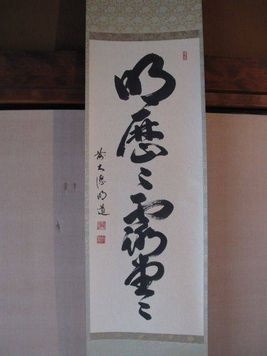 明歴々露堂々
前大徳明道